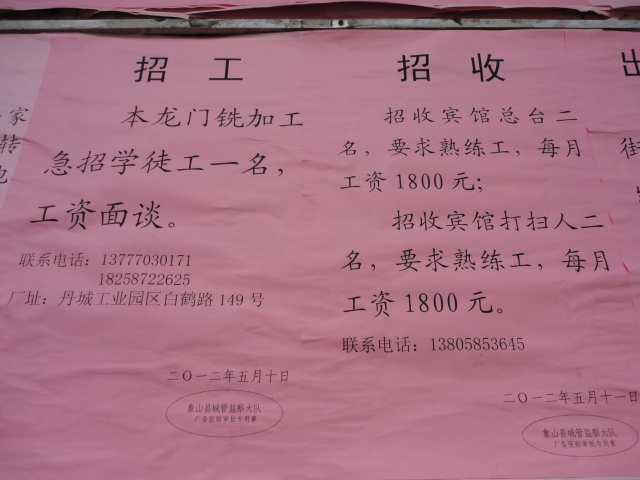 家
转
招 工
本龙门铣加工
急招学徒工一名，
工资面谈。
联系电话：13777030171
18258722625
厂址：丹城工业园区白鹤路 149 号
二○一二年五月十日
象山县城管监察大队
广告张贴审批专用章
招 收
招收宾馆总台二
名，要求熟练工，每月
工资 1800 元；
招收宾馆打扫人二
名，要求熟练工，每月
工资 1800 元。
联系电话：13805853645
二○一二年五月十一日
象山县城管监察大队
广告张贴审批专用章
出
街